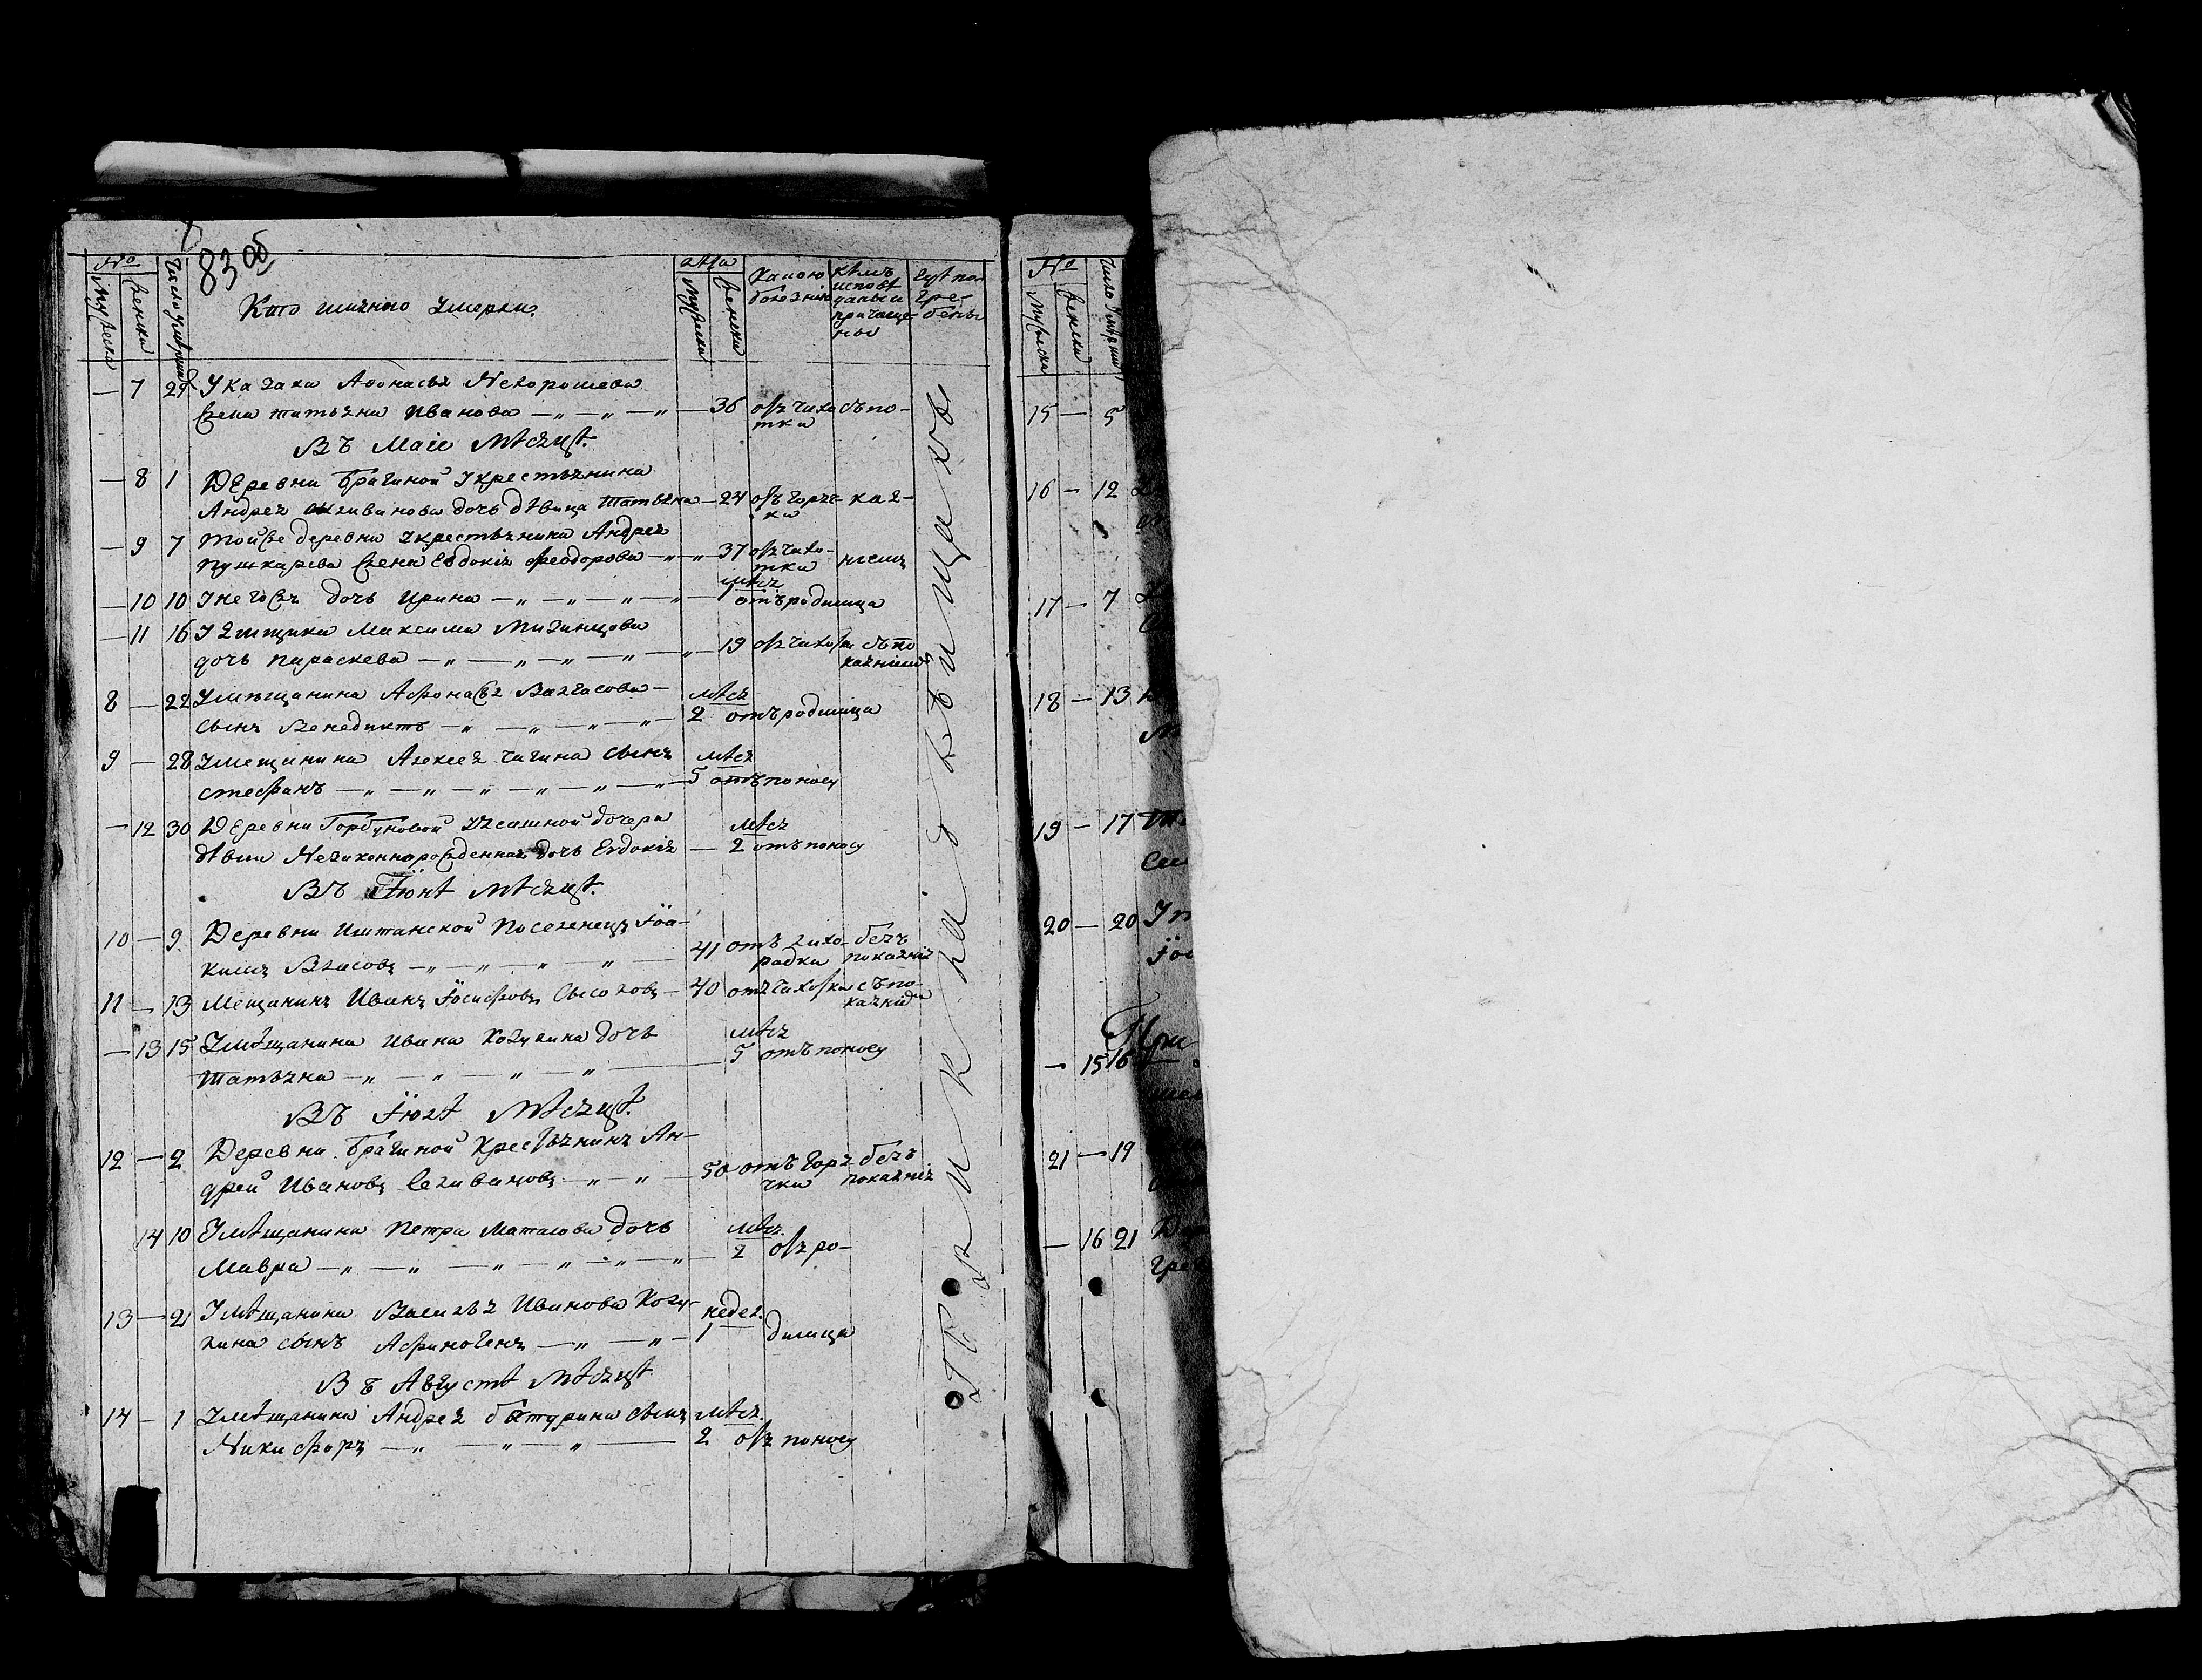 83 об
№ Мужеска Женска
Число умершихъ
Кто имянно умерли.
лѣта Мужеска Женска
Какою болѣзнію
кѣмъ исповѣданы и причащены
Гдѣ погребены
— 7 29 У казака Афонасья Нехорошева
жена татьяна Иванова — 36 отъ чахотки съ по-
Въ Маіе Мѣсяцѣ.
— 8 1 Деревни Брагиной у крестьянина
Андрея Селиванова дочь дѣвица Татьяна — 24 отъ горячки кая-
— 9 7 Тойже деревни у крестьянина Андрея
Пушкарева жена Евдокія Феодорова — 37 отъ чахотки ніемъ
— 10 10 У негожъ дочь Ирина — мѣся 1 отъ родимца
— 11 16 У ямщика Максима
дочь параскева — 19 отъ чахотки съ покаяніемъ
8 — 22 У мѣщанина Афонасья
сынъ Венедиктъ — мѣся 2 отъ родимца
9 — 28 У мещанина Алексея чагина сынъ
стефанъ — мѣся 5 отъ поносу
— 12 30 Деревни Горбуновой у ясашной дочери
дѣвки Незаконнорожденная дочь Евдокія — мѣся 2 отъ поносу
Въ Іюнѣ Мѣсяцѣ.
10 — 9 Деревни Иштанской Поселенецъ Іоа-
кимъ Власовъ — 41 отъ лихорадки безъ покаянія
11 — 13 Мещанинъ Иванъ Іосифовъ Сысоловъ — 40 отъ чахотки съ покаяніем
— 13 15 У мѣщанина Ивана Кожукина дочь
Татьяна — мѣся 5 отъ поносу
Въ Іюлѣ Мѣсяцѣ.
12 — 2 Деревни Брагиной Крестьянинъ Ан-
дрей Ивановъ Селивановъ — 50 отъ горячки безъ покаянія
14 10 У мѣщанина Петра дочь
Мавра — мѣся 2 отъ ро-
13 — 21 У мѣщанина Василья Иванова
кина сынъ Афиногенъ — недел. 1 димца
Въ Августѣ Мѣсяцѣ
14 — 1 У мѣщанина Андрея батурина сынъ
Никифоръ — мѣся 2 отъ поносу
кладбищахъ
№ Мужеска Женска
Число умершихъ
15 — 5
16 — 12
17 — 7
18 — 13
19 — 17
20 — 20
При
— 15 16
21 — 19
— 16 21